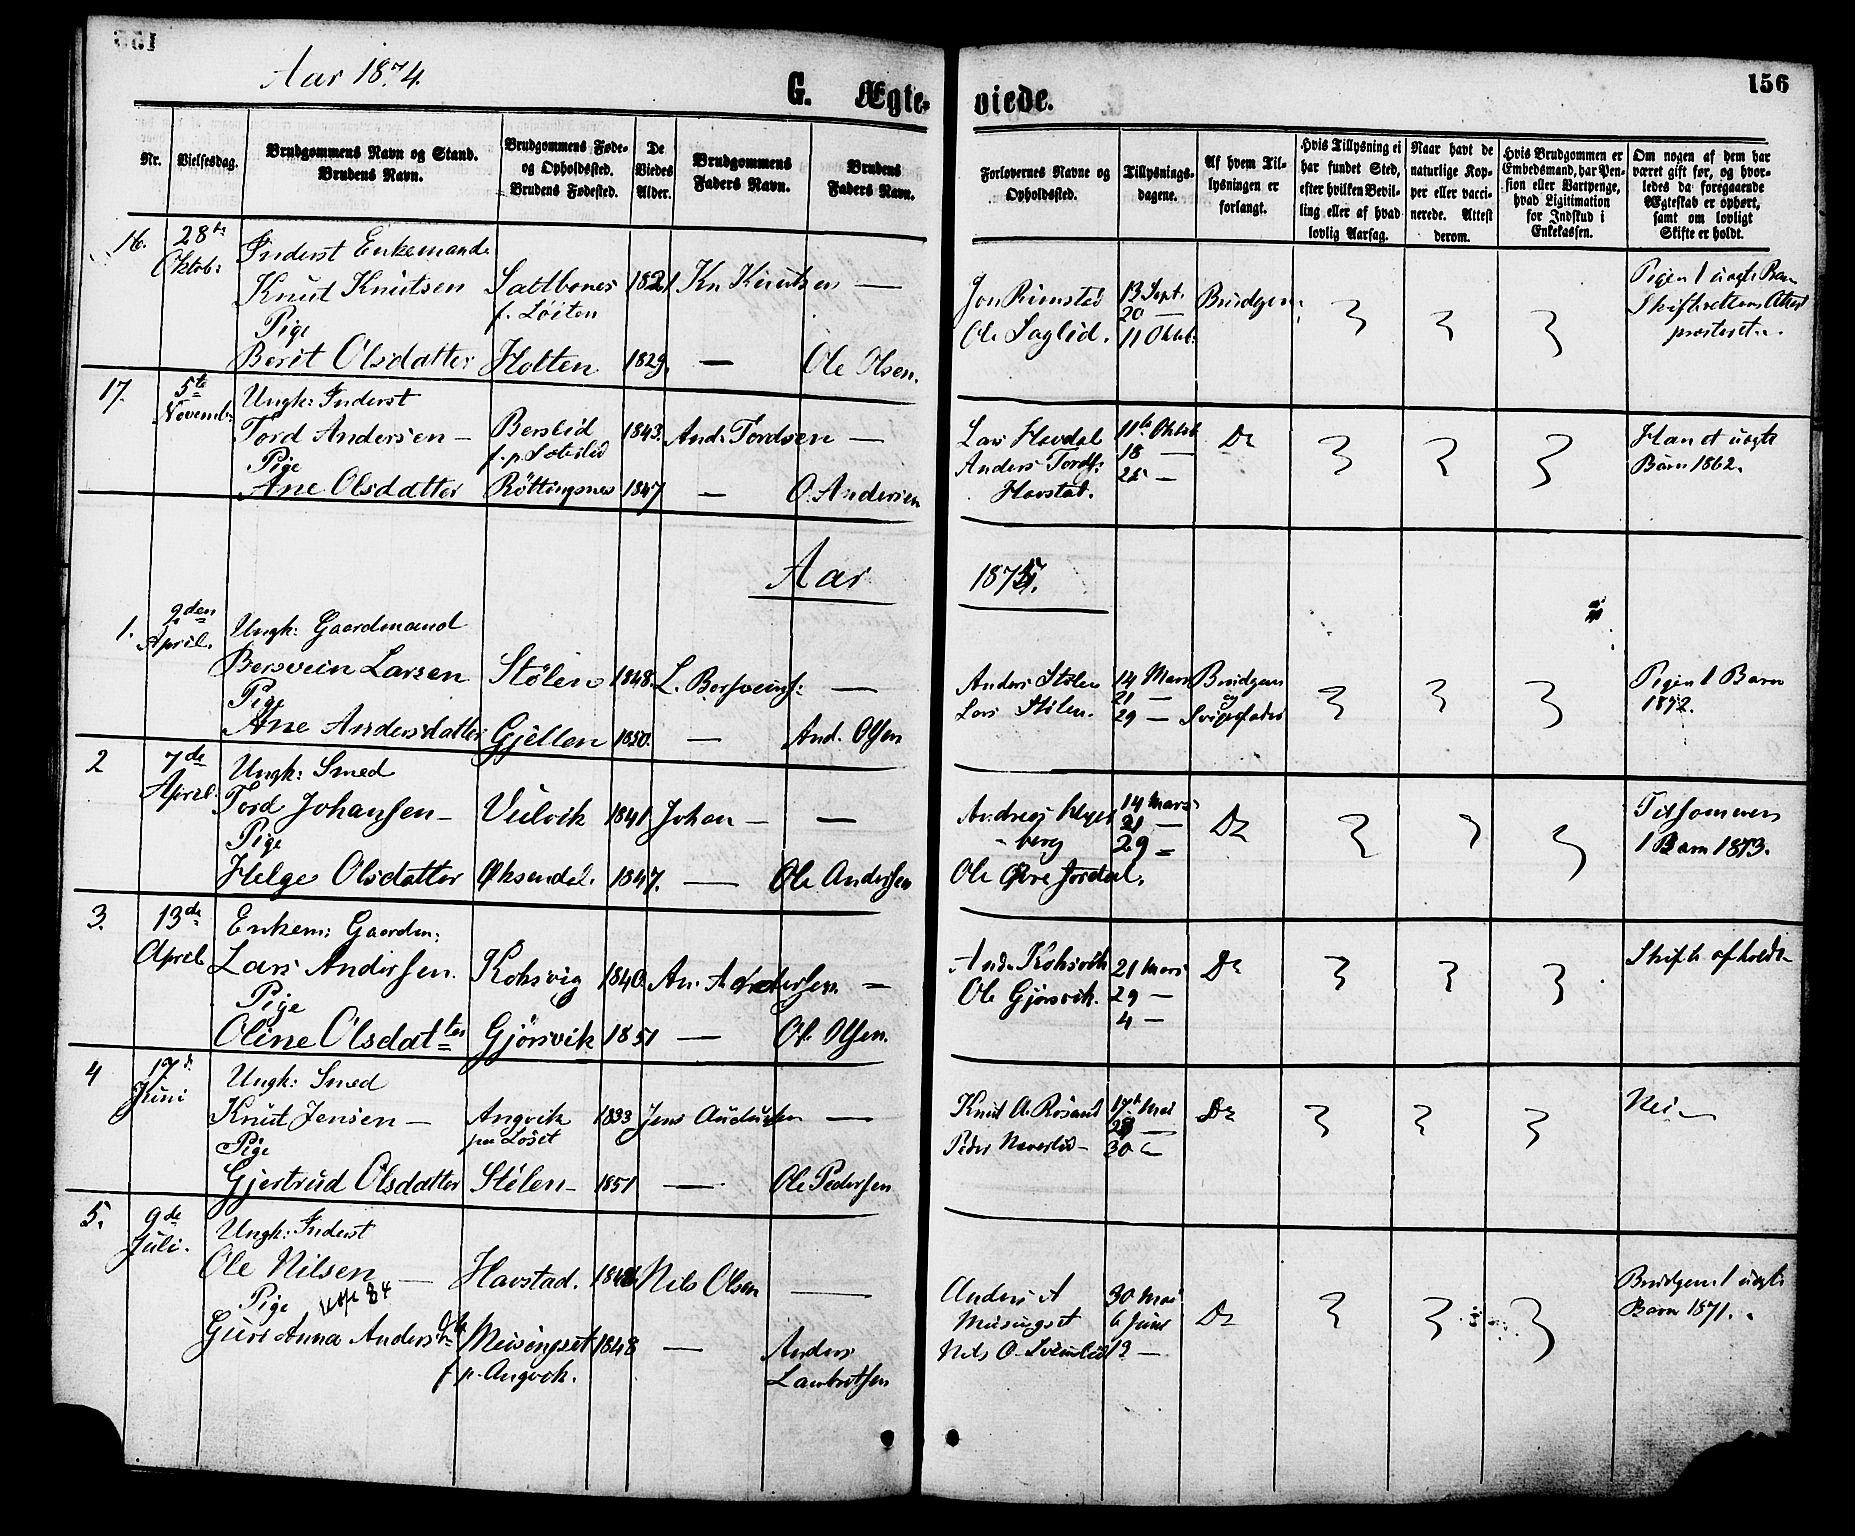 Aar 1874.
G. Ægteviede.
156
Nr.
Vielsesdag.
Brudgommens Navn og Stand.
Brudens Navn.
Brudgommens Føde-
og Opholdssted.
Brudens Fødested.
De
Viedes
Alder.
Brudgommens
Faders Navn.
Brudens
Faders Navn.
Forlovernes Navne og
Opholdssted.
Tillysnings-
dagene.
Af hvem Til-
lysningen er
forlangt.
Hvis Tillysning ei
har fundet Sted,
efter hvilken Bevil-
ling eller af hvad
lovlig Aarsag.
Naar havt de
naturlige Kop-
per eller vacci-
nerede. Attest
derom.
Hvis Brudgommen er
Embedsmand, har Pen-
sion eller Vartpenge,
hvad Ligitimation
for Indskud i
Enkekassen.
Om nogen af dem har
været gift før, og hvor-
ledes da foregaaende
Ægteskab er ophørt,
samt om lovligt
Skifte er holdt.
16. 28de Oktob:
Inderst Enkemand
Knut Knutsen Saltbones 1821 Kn Knutsen —
f. Løiten
Pige
Berit Olsdatter Holten 1829 — Ole Olsen.
Jon Rimsted 13 Sept. Brudgom:
20 —
Ole Saglid. 11 Oktob:
Pigen 1 uægte Barn
Skifterettens Attest
præsteret.
17. 5te Novemb:
Ungk: Inderst
Tord Andersen — Berslid 1843. And. Tordsen —
Pige
Ane Olsdatter Röttingsnes 1847 — O. Andersen
Lars Havdal 11te Oktob Do
Anders Tords: 18 —
Havstad. 25 —
Han et uægte
Barn 1862.
Aar 1875.
1. 2den April.
Ungk: Gaardmand
Bersvein Larsen Stölen 1848. L. Bersveins: —
Pige
Ane Andersdatter Gjellen 1850. — And. Olsen
Anders Stølen 14 Mars Brudgom
21 — og
Lars Stølen. 29 — Svigefader
Pigen 1 Barn
1872.
2 7de April.
Ungk: Smed
Tord Johansen — Vulvik 1841 Johan — —
Pige
Helge Olsdatter Øksendal. 1847. — Ole Andersen
14 Mars
21 — Do
berg 29 —
Ole Øvre Jordal.
Tilsammen
1 Barn 1873.
3. 13de April
Enkem: Gaardm:
Lars Andersen. Koksvig 1840. An. Andersen. —
Pige
Oline Olsdatter Gjörsvik 1851 — Ol. Olsen.
And. Koksvik 21 Mars Do
Ole Gjørsvik. 29 —
4 —
Skifte afholdt
4 17de Juni
Ungk: Smed
Knut Jensen — Angvik 1833 Jens Audunsen —
paa Løset
Pige
Gjertrud Olsdatter Stølen — 1851 — Ole Pedersen
Knut A. Røsand 17de Mai Do
Peder Neverlid — 30 —
Nei —
5. 9de Juli.
Ungk: Inderst
Ole Nilsen — Havstad. 1848 Nils Olsen —
Pige
Guri Anna Andersdtr Meisingset 1848 — Anders
f. p. Angvik. Lambertsen
Anders A 30 Mai
Meisingset 6 Juni Do
Nils O. 13 —
Brudgom 1 uægte
Barn 1871.